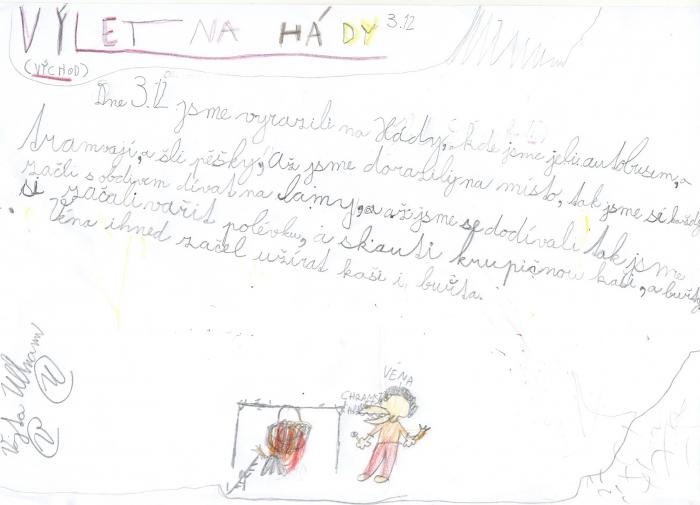 VÝLET NA HÁDY 3.12
(VÝCHOD)
Dne 3.12 jsme vyrazili na Hády, kde jsme jeli autobusem, a
tramvají, a šli pěšky, Až jsme dorazily na místo, tak jsme si
začli s obdivem dívat na lamy, a až jsme se dodívali tak jsme
si začali vařit polévku, a skauti krupičnou kaši, a buřty
Véna ihned začel užírat kaši i buřta.
VÉNA
CHRAMST
Vojta Ullmann